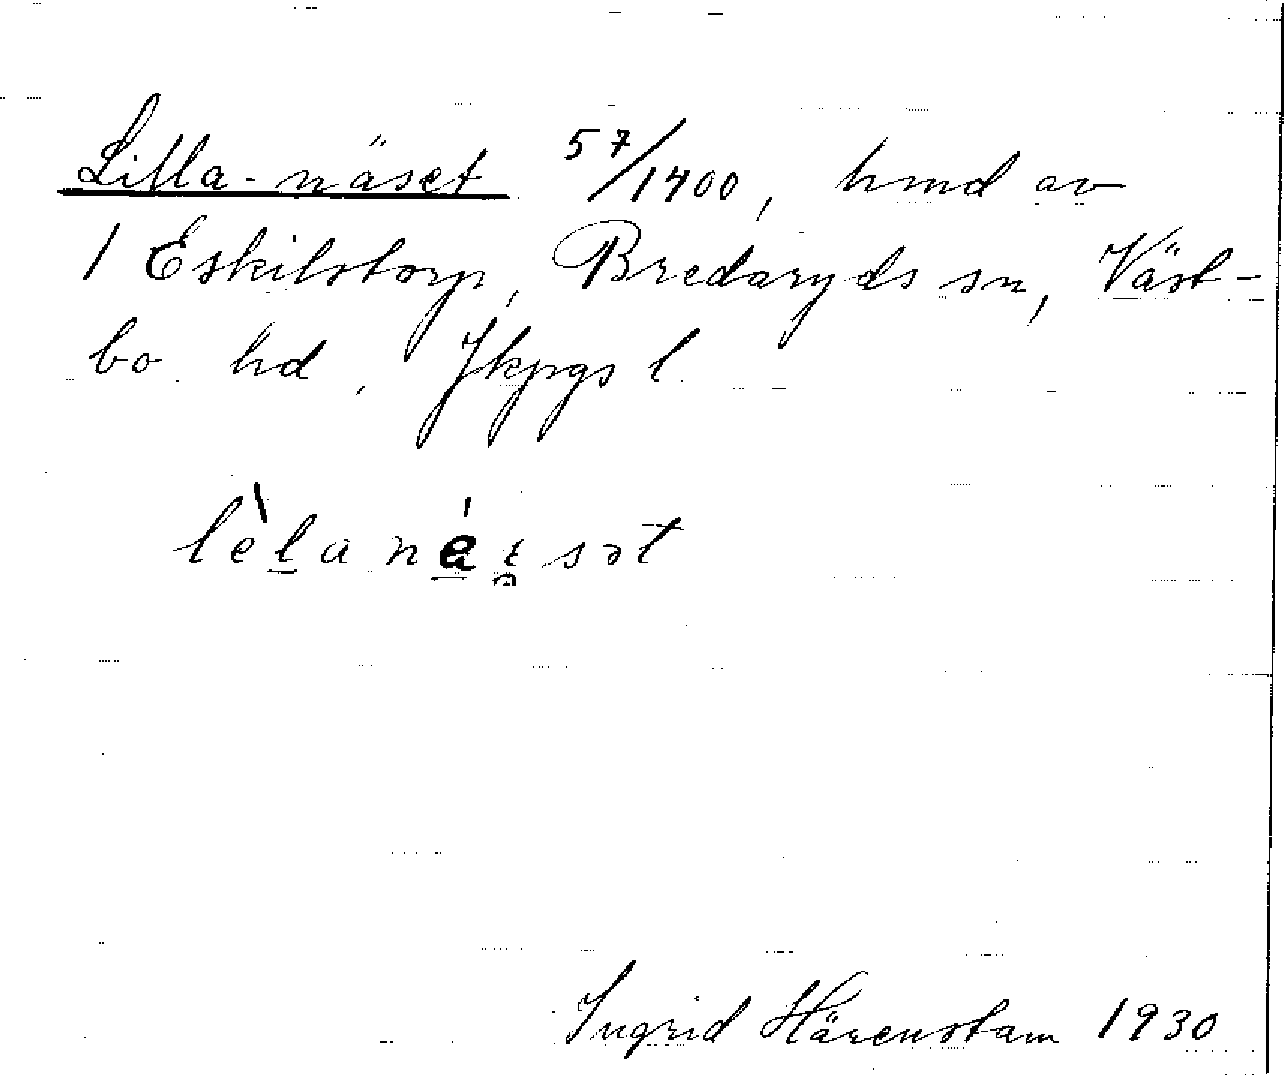 Lilla-näset 57/1400, hmd av
1 Eskilstorp, Bredaryds sn, Väst-
bo hd, Jkpgs l.
lèla
Ingrid Härenstam 1930